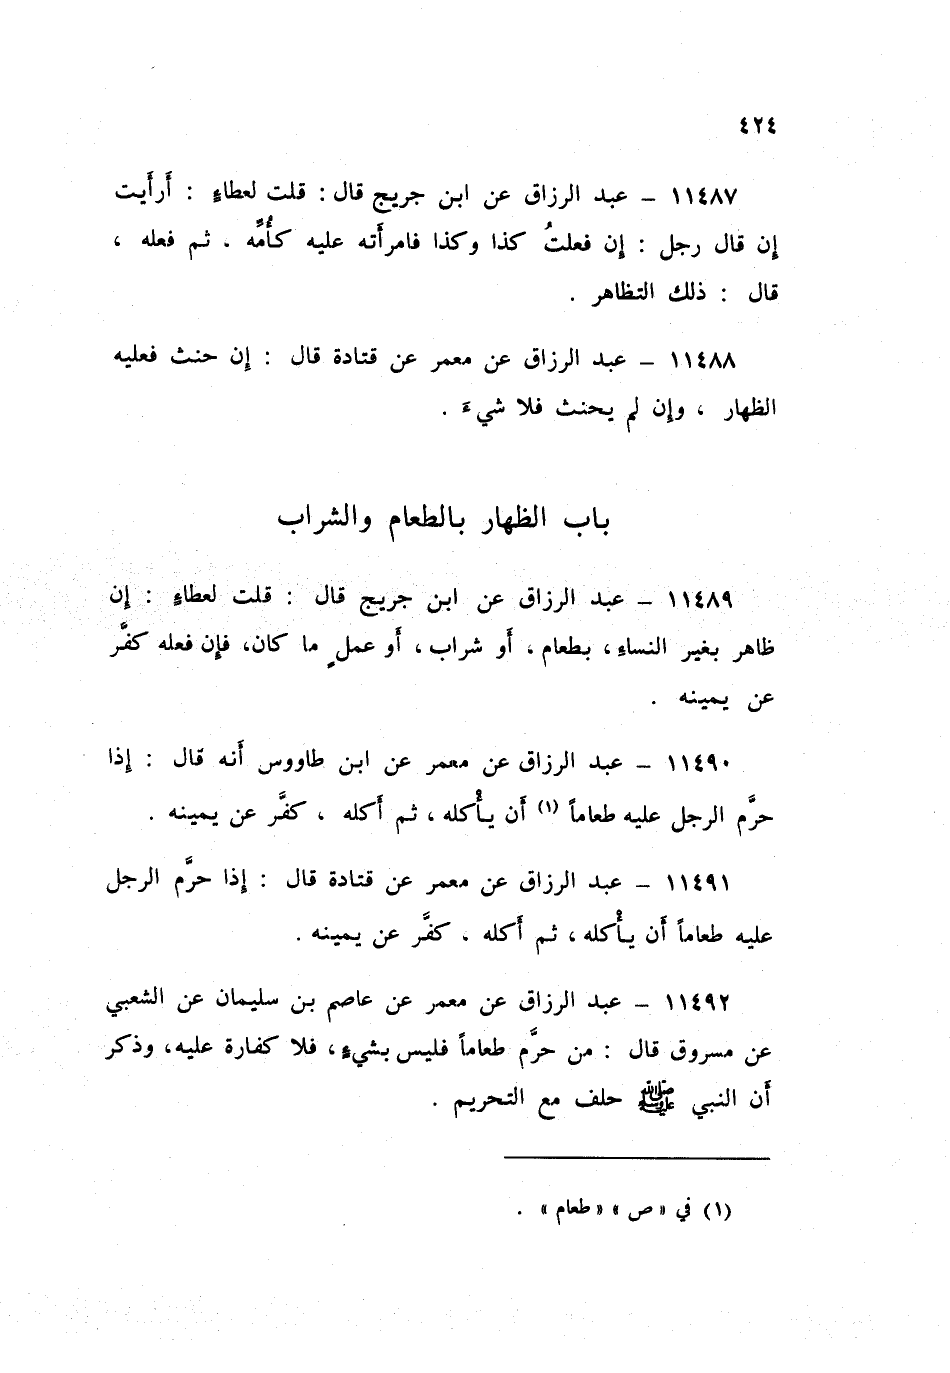 ٤٢٤
١١٤٨٧ – عبد الرزاق عن ابن جريج قال : قلت لعطاءٍ : أَرأَيت
إِن قال رجل : إِن فعلتُ كذا وكذا فامرأَته عليه كأُمِّه ، ثم فعله ،
قال : ذلك التظاهر .
١١٤٨٨ – عبد الرزاق عن معمر عن قتادة قال : إِن حنث فعليه
الظهار ، وإِن لم يحنث فلا شيءَ .
باب الظهار بالطعام والشراب
١١٤٨٩ – عبد الرزاق عن ابن جريج قال : قلت لعطاءٍ : إِن
ظاهر بغير النساءِ ، بطعام ، أَو شراب ، أَو عملٍ ما كان، فإِن فعله كفَّر
عن يمينه .
١١٤٩٠ – عبد الرزاق عن معمر عن ابن طاووس أَنه قال : إِذا
حرَّم الرجل عليه طعاماً (١) أَن يأْكله ، ثم أَكله ، كفَّر عن يمينه .
١١٤٩١ – عبد الرزاق عن معمر عن قتادة قال : إِذا حرَّم الرجل
عليه طعاماً أَن يأْكله ، ثم أَكله ، كفَّر عن يمينه .
١١٤٩٢ – عبد الرزاق عن معمر عن عاصم بن سليمان عن الشعبي
عن مسروق قال : من حرَّم طعاماً فليس بشيءٍ ، فلا كفارة عليه، وذكر
أَن النبي ﷺ حلف مع التحريم .
(١) في « ص » « طعام » .